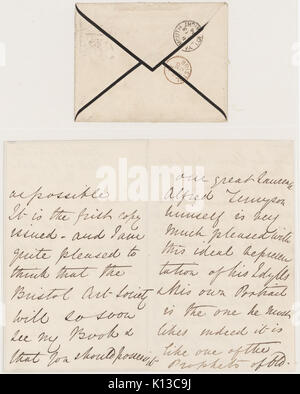 as possible
It is the first copy
issued - and I am
quite pleased to
think that the
Bristol Art Society
will so soon
see my Book &
that you should possess it
our great Laureate
Alfred Tennyson
himself is very
much pleased with
this ideal represen
tation of his Idylls
& his own Portrait
is the one he most
likes indeed it is
like one of the
Prophets of Old.
alamy
Image ID: K13C9J
www.alamy.com